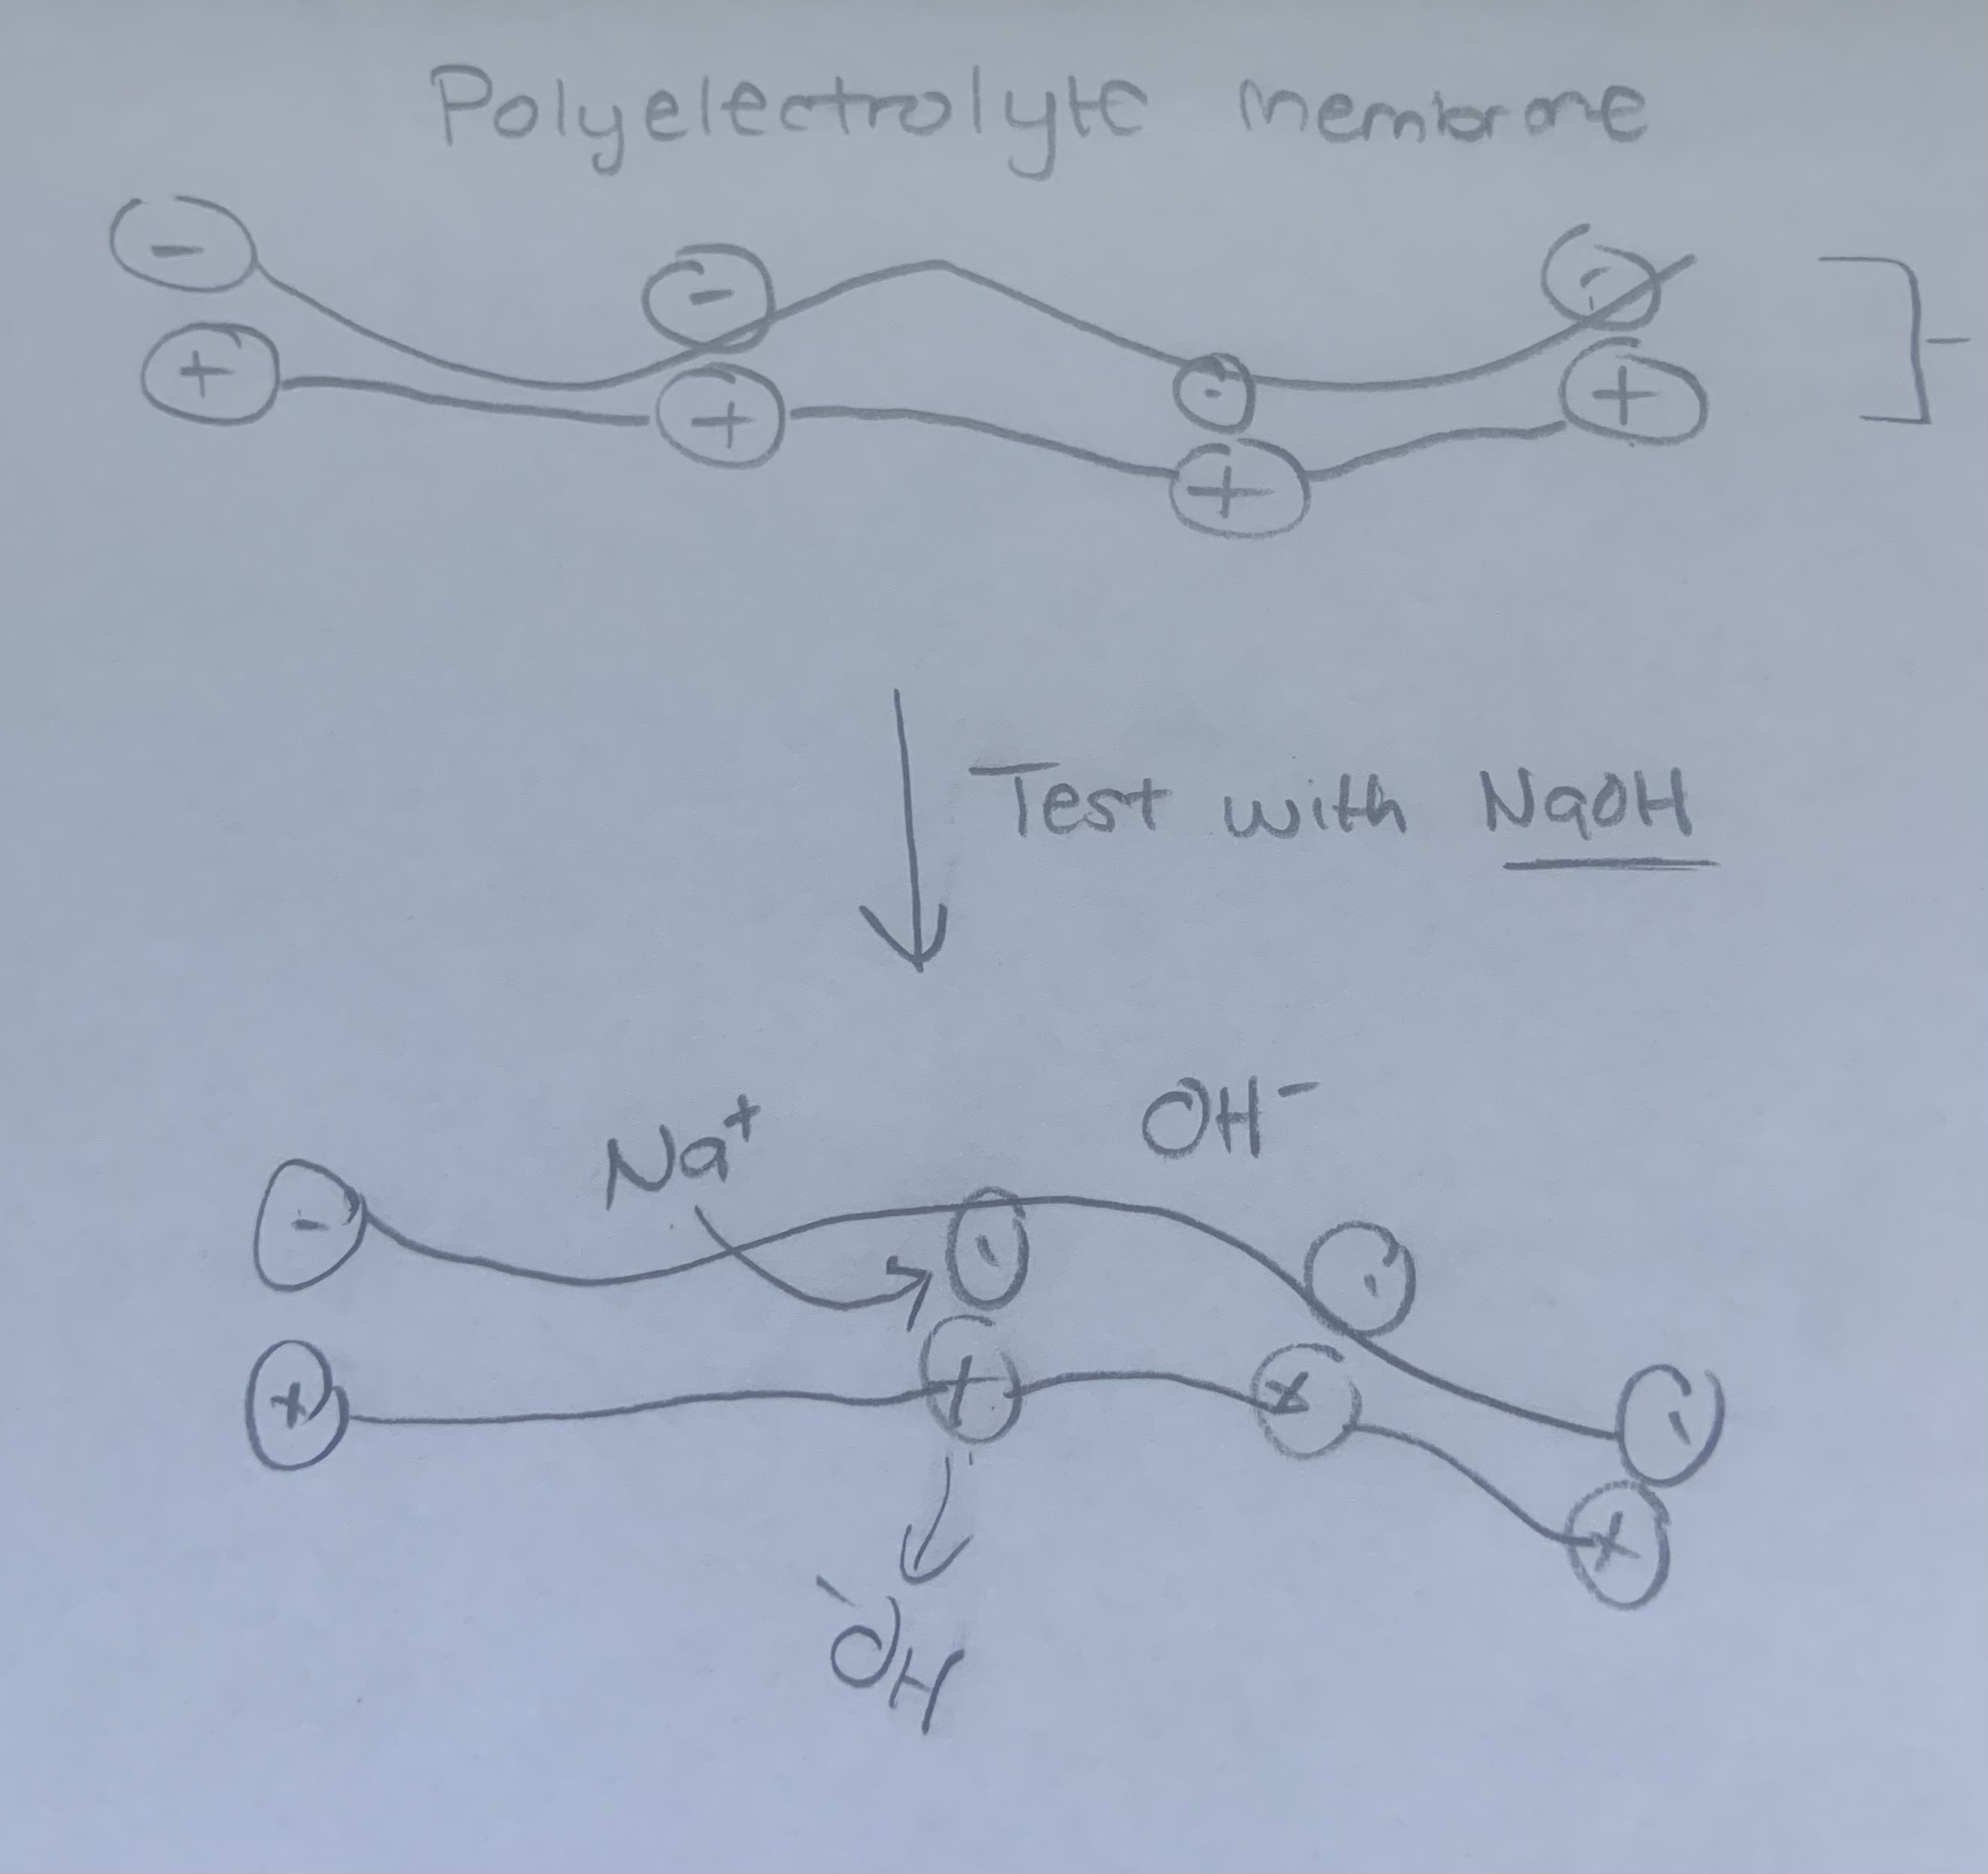 Polyelectrolyte membrane
-
-
-
-
+
+
+
+
Test with NaOH
Na⁺ OH⁻
-
-
-
-
+
+
+
+
⁻OH